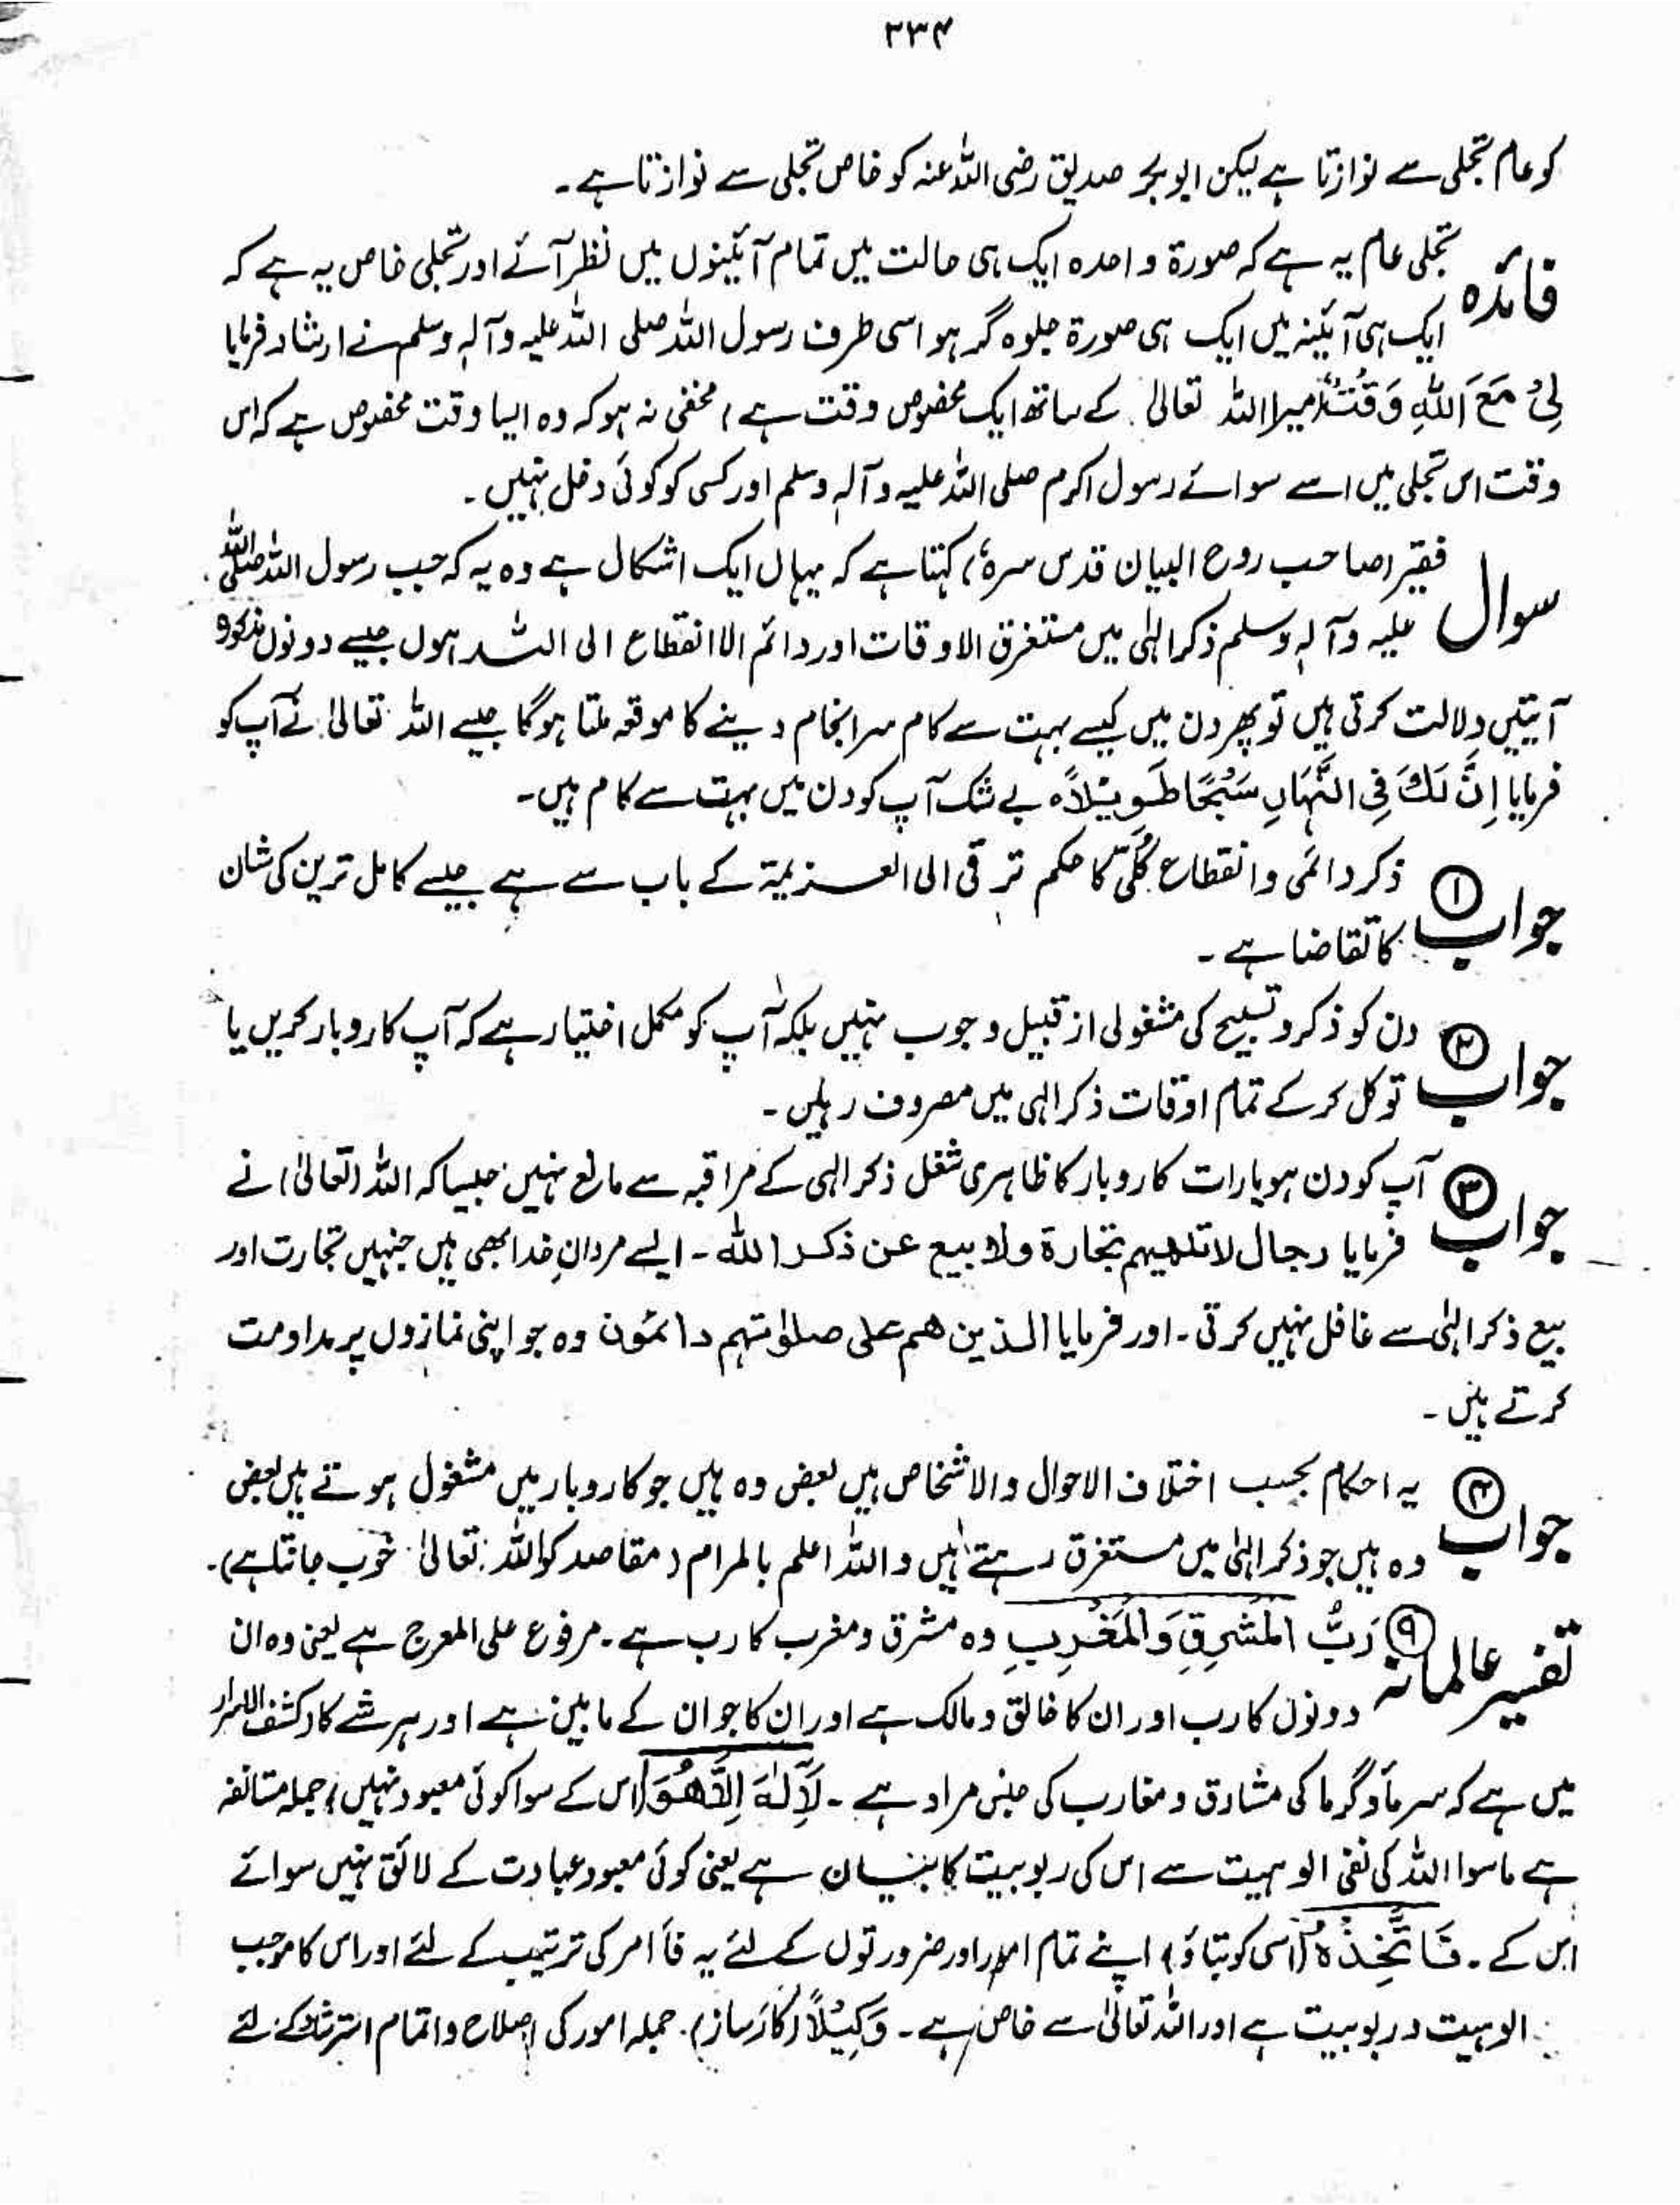 ۲۳۴
کو عام تجلی سے نوازتا ہے لیکن ابوبکر صدیق رضی اللہ عنہ کو خاص تجلی سے نوازتا ہے۔
فائدہ تجلی عام یہ ہے کہ صورۃ واحدہ ایک ہی حالت میں تمام آئینوں میں نظر آئے اور تجلی خاص یہ ہے کہ
ایک ہی آئینہ میں ایک ہی صورۃ جلوہ گر ہو اسی طرف رسول اللہ صلی اللہ علیہ وآلہٖ وسلم نے ارشاد فرمایا
لِیْ مَعَ اللّٰہِ وَقْتٌ (میرا اللہ تعالیٰ کے ساتھ ایک مخصوص وقت ہے) مخفی نہ ہو کہ وہ ایسا وقت مخصوص ہے کہ اس
وقت اس تجلی میں اسے سوائے رسول اکرم صلی اللہ علیہ وآلہٖ وسلم اور کسی کو کوئی دخل نہیں۔
سوال فقیر (صاحب روح البیان قدس سرہٗ) کہتا ہے کہ یہاں ایک اشکال ہے وہ یہ کہ جب رسول اللہ صلی اللہ
علیہ وآلہٖ وسلم ذکر الٰہی میں مستغرق الاوقات اور دائم الاانقطاع الی اللہ ہوں جیسے دونوں مذکورہ
آیتیں دلالت کرتی ہیں تو پھر دن میں کیسے بہت سے کام سرانجام دینے کا موقعہ ملتا ہوگا جیسے اللہ تعالیٰ نے آپ کو
فرمایا اِنَّ لَکَ فِی النَّہَارِ سَبْحًا طَوِیْلًاہ بے شک آپ کو دن میں بہت سے کام ہیں۔
جواب ① ذکر دائمی و انقطاع کُلّی کا حکم ترقی الی العزیمۃ کے باب سے ہے جیسے کامل ترین کی شان
کا تقاضا ہے۔
جواب ② دن کو ذکر و تسبیح کی مشغولی از قبیل وجوب نہیں بلکہ آپ کو مکمل اختیار ہے کہ آپ کاروبار کریں یا
توکل کر کے تمام اوقات ذکر الہی میں مصروف رہیں۔
جواب ③ آپ کو دن ہو یا رات کاروبار کا ظاہری شغل ذکر الہی کے مراقبہ سے مانع نہیں جیسا کہ اللہ (تعالیٰ) نے
فرمایا رجال لا تلھیہم تجارۃ ولا بیع عن ذکر اللہ۔ ایسے مردانِ خدا بھی ہیں جنہیں تجارت اور
بیع ذکر الٰہی سے غافل نہیں کرتی۔ اور فرمایا الذین ھم علی صلوٰتہم دائمون وہ جو اپنی نمازوں پر مداومت
کرتے ہیں۔
جواب ④ یہ احکام بحسب اختلاف الاحوال والاشخاص ہیں بعض وہ ہیں جو کاروبار میں مشغول ہوتے ہیں بعض
وہ ہیں جو ذکر الٰہی میں مستغرق رہتے ہیں واللہ اعلم بالمرام (مقاصد کو اللہ تعالیٰ خوب جانتا ہے)۔
تفسیر عالمانہ ⑨ رَبُّ الْمَشْرِقِ وَالْمَغْرِبِ وہ مشرق و مغرب کا رب ہے۔ مرفوع علی المعرج ہے یعنی وہ ان
دونوں کا رب اور ان کا خالق و مالک ہے اور ان کا جو ان کے مابین ہے اور ہر شے کا۔ کشف الاسرار
میں ہے کہ سرما و گرما کی مشارق و مغارب کی جنس مراد ہے۔ لَآ اِلٰہَ اِلَّا ھُوَ (اس کے سوا کوئی معبود نہیں) جملہ مستانفہ
ہے ماسوا اللہ کی نفی الوہیت سے اس کی ربوبیت کا بیان ہے یعنی کوئی معبود عبادت کے لائق نہیں سوائے
اس کے۔ فَاتَّخِذْہُ (اسی کو بناؤ) اپنے تمام امور اور ضرورتوں کے لئے یہ فاء امر کی ترتیب کے لئے اور اس کا موجب
الوہیت و ربوبیت ہے اور اللہ تعالیٰ سے خاص ہے۔ وَکِیْلًا (کارساز)۔ جملہ امور کی اصلاح و اتمام کے لئے